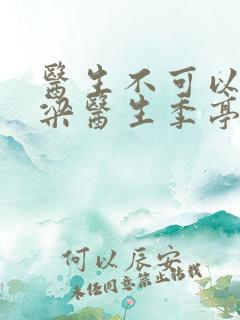 醫生不可以
梁醫生季亭
何以辰安
未经同意禁止转载